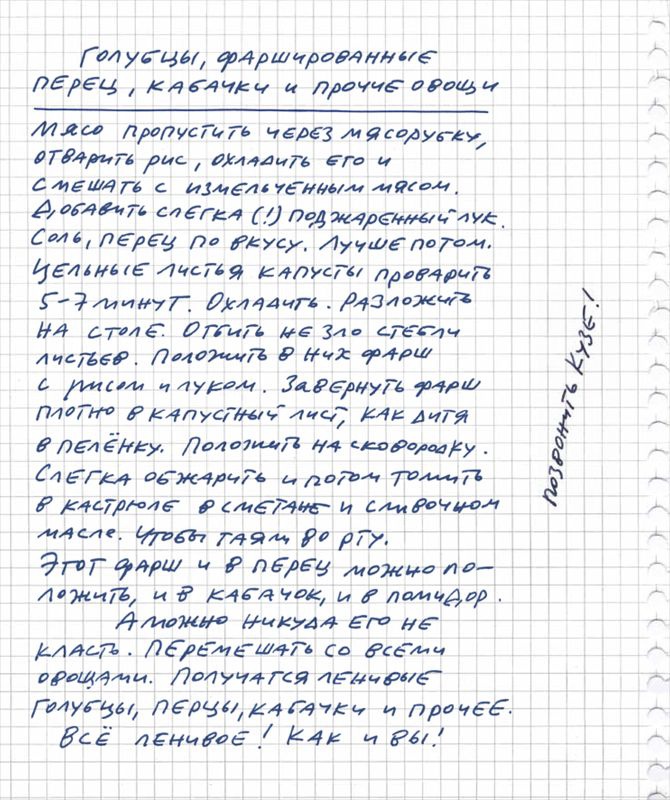 Голубцы, фаршированные
перец, кабачки и прочие овощи
Мясо пропустить через мясорубку,
отварить рис, охладить его и
смешать с измельченным мясом.
Добавить слегка (!) поджаренный лук.
Соль, перец по вкусу. Лучше потом.
Цельные листья капусты проварить
5-7 минут. Охладить. Разложить
на столе. Отбить не зло стебли
листьев. Положить в них фарш
с рисом и луком. Завернуть фарш
плотно в капустный лист, как дитя
в пелёнку. Положить на сковородку.
Слегка обжарить и потом томить
в кастрюле в сметане и сливочном
масле. Чтобы таям во рту.
Этот фарш и в перец можно по-
ложить, и в кабачок, и в помидор.
А можно никуда его не
класть. Перемешать со всеми
овощами. Получатся ленивые
голубцы, перцы, кабачки и прочее.
Всё ленивое! Как и вы!
Позвонить Кузе!